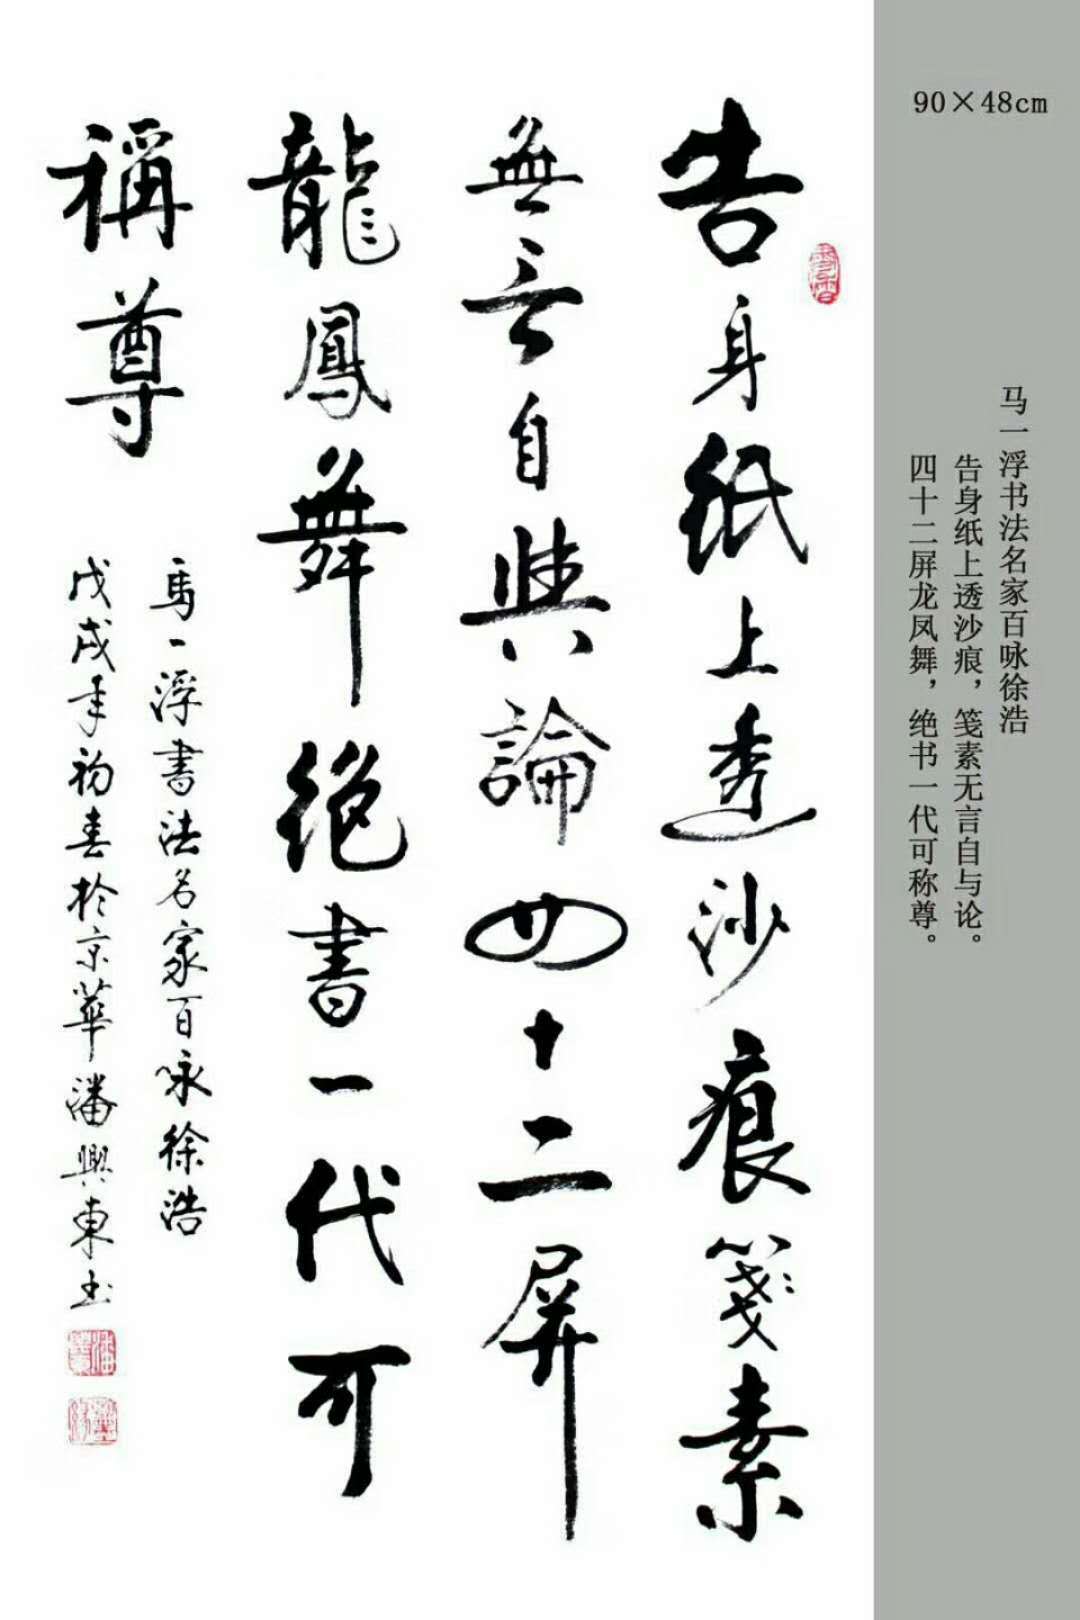 90×48cm
马一浮书法名家百咏徐浩
告身纸上透沙痕，笺素无言自与论。
四十二屏龙凤舞，绝书一代可称尊。
告身紙上透沙痕箋素
無言自與論四十二屏
龍鳳舞絕書一代可
稱尊
馬一浮書法名家百咏徐浩
戊戌年初春於京華潘興東书